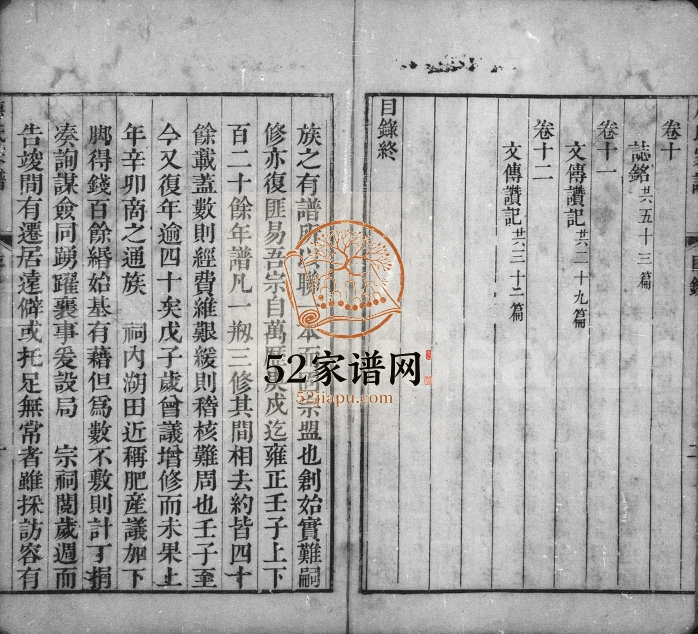 卷十
誌銘共五十三篇
卷十一
文傳讚記共二十九篇
卷十二
文傳讚記共三十二篇
目錄終
目錄
二
族之有譜 聯 本 宗盟也創始實難嗣
修亦復匪易吾宗自萬曆庚戌迄雍正壬子上下
百二十餘年譜凡一刱三修其間相去約皆四十
餘載蓋數則經費維艱緩則稽核難周也壬子至
今又復年逾四十矣戊子歲曾議增修而未果上
年辛卯商之通族 祠內湖田近稱肥產議
下
脚得錢百餘緡始基有藉但為數不敷則計丁捐
湊詢謀僉同踴躍襄事爰設局 宗祠閱歲週而
告竣間有遷居遠僻或托足無常者雖採訪容有
52家谱网
52jiapu.com